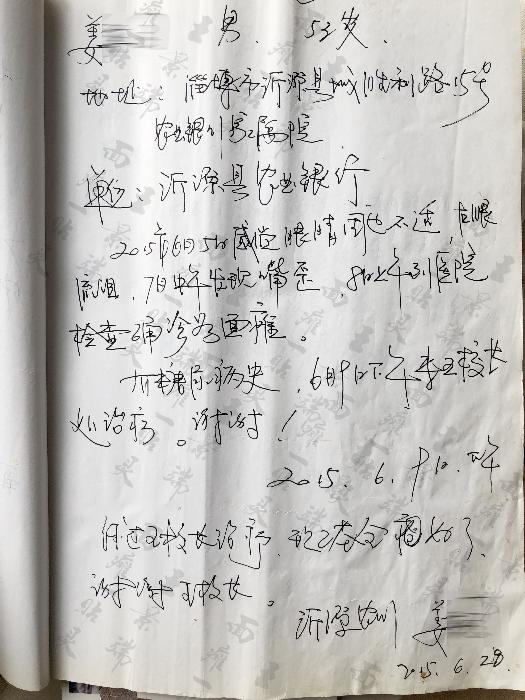 姜 男. 53岁.
地址：淄博市沂源县城胜利路15号
农业银行家属院
单位：沂源县农业银行
2015年6月5日感觉眼睛周边不适 左眼
流泪，7日中午发现嘴歪，8日上午到医院
检查确诊为面瘫。
有糖尿病史，6月9日下午来王校长
处治疗。谢谢！
2015. 6. 9日. 下午
经过王校长治疗，现已基本痊愈了、
谢谢王校长。
沂源农行 姜
2015. 6. 28